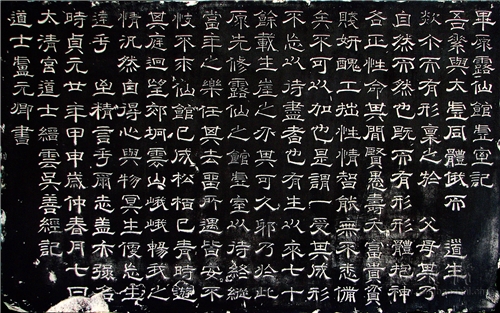 畢原露仙館虛室記
吾業與太虛同體俄而 道生一
欻尒而有形稟之於 父母其乃
自然而然也既而有形形體抱神
各正性命其間賢愚壽夭富貴貧
賤妍醜工拙性情智能無不悉備
矣不可以加也是謂一受其成形
不忘以待盡者也有生以來七十
餘載生崖之亦其可久耶乃於此
原先修露仙之館虛室以待終縱
當年之樂任其去留所遇皆安不
忮不求仙館已成松柏已青時遊
其庭迴望郊坰雲山峨峨暢我之
情況然自得心與物冥生便忘生
達乎 至精言乎爾志蓋亦強名
時貞元廿年甲申歲仲春月七日
太清宮道士縉雲吳善經記
道士盧元卿書